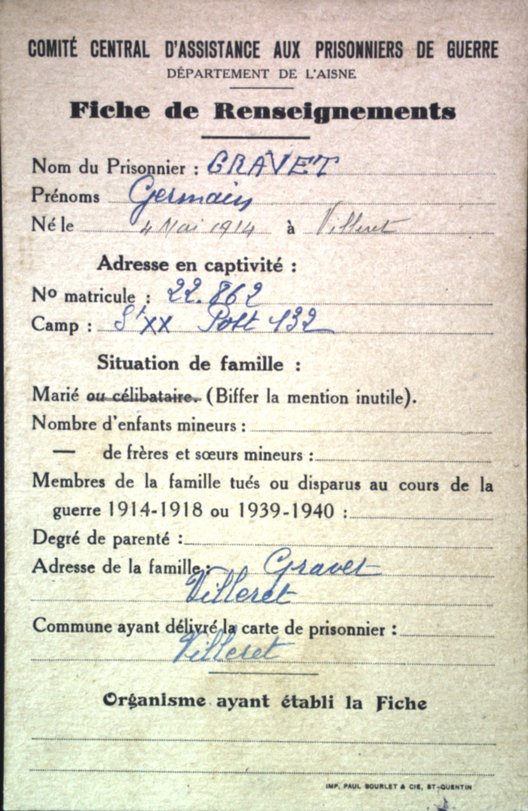 COMITÉ CENTRAL D'ASSISTANCE AUX PRISONNIERS DE GUERRE
DÉPARTEMENT DE L'AISNE
Fiche de Renseignements
Nom du Prisonnier : GRAVET
Prénoms Germain
Né le 4 Mai 1914 à Villeret
Adresse en captivité :
No matricule : 22.862
Camp : St XX Post 132
Situation de famille :
Marié ou célibataire. (Biffer la mention inutile).
Nombre d'enfants mineurs :
— de frères et sœurs mineurs :
Membres de la famille tués ou disparus au cours de la
guerre 1914-1918 ou 1939-1940 :
Degré de parenté :
Adresse de la famille : Gravet
Villeret
Commune ayant délivré la carte de prisonnier :
Villeret
Organisme ayant établi la Fiche
IMP. PAUL BOURLET & CIE, ST-QUENTIN